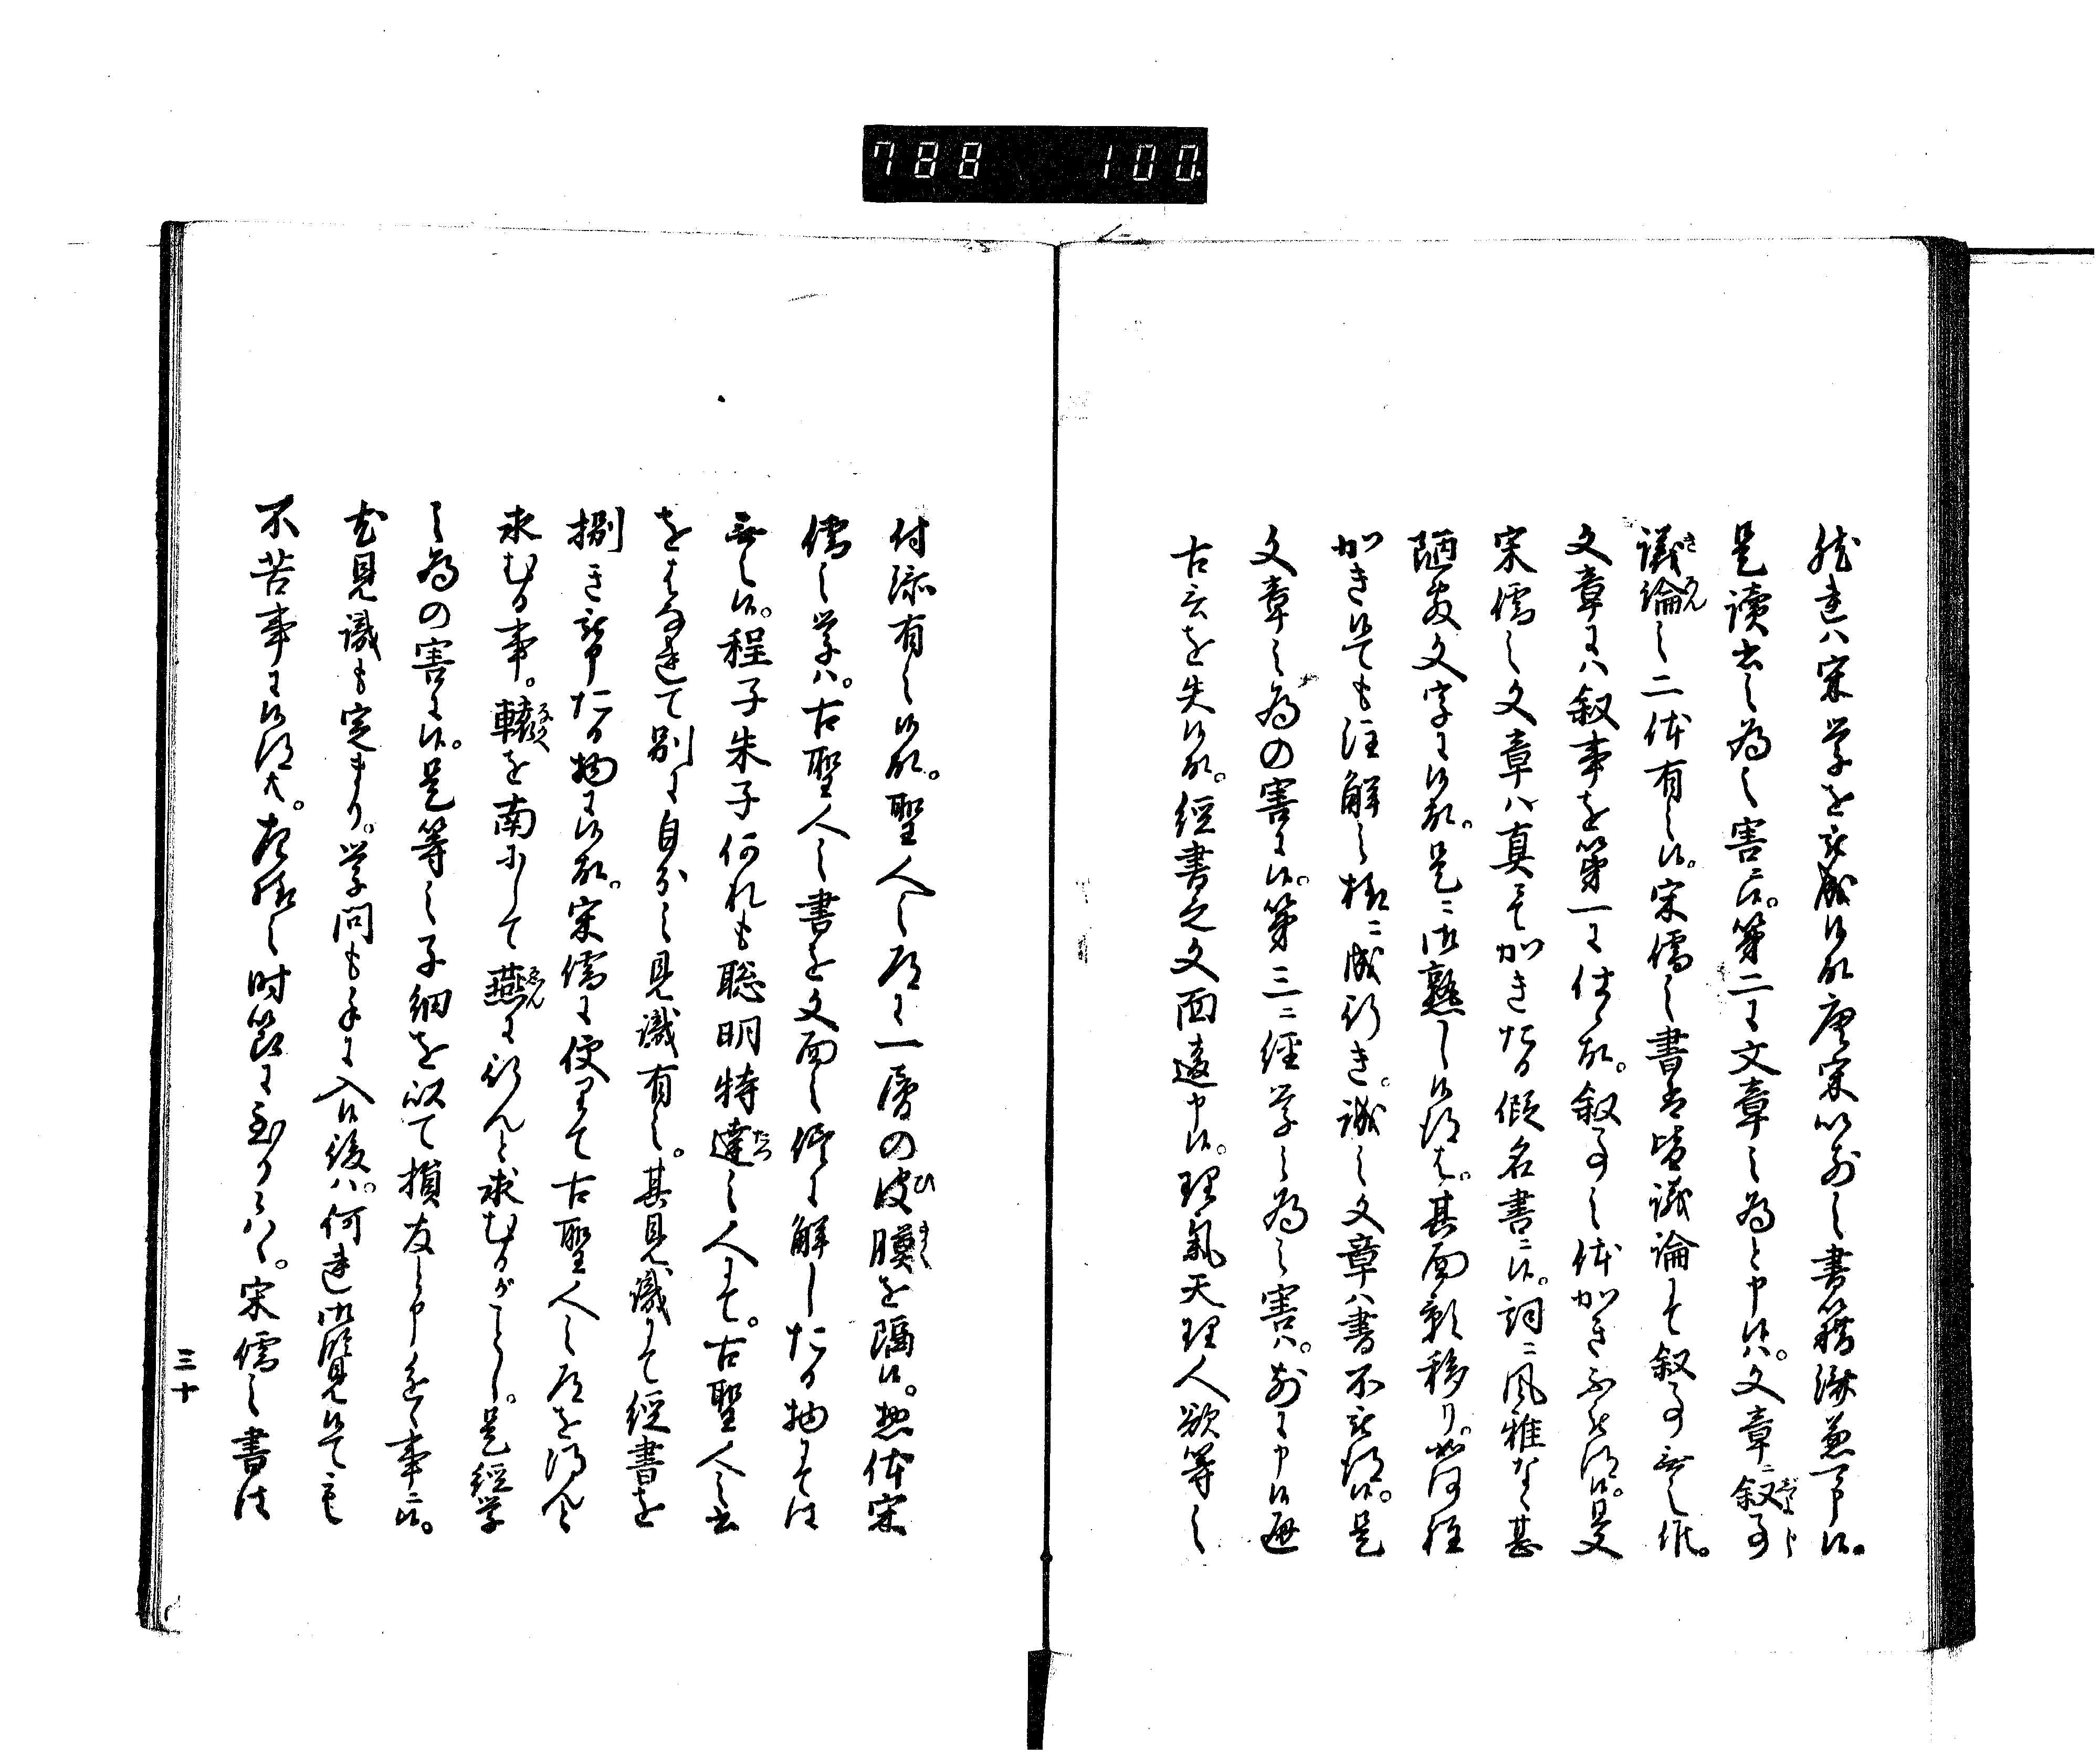 788 100
能達ハ宋学を被成候故唐宋以前之書籍嫌兼可申候。
是読書之為之害に候。第二に文章之為と申候ハ。文章に叙事
議論之二体有之候。宋儒之書者皆議論にて叙事無之候。
文章にハ叙事を第一に仕候故。叙事之体かき不被得候。是又
宋儒之文章ハ真にてかきたる仮名書に候。詞に風雅なく甚
陋敷文字に候故。是に御熟し候得は。其面影移り。如何程
かき候ても注解之様に成行き。誠之文章ハ書不被得候。是
文章之為の害に候。第三に経学之為之害ハ。前に申候通
古言を失候故。経書之文面違申候。理気天理人欲等之
付添有之候故。聖人之道に一層の皮膜を隔候。惣体宋
儒之学ハ。古聖人之書を文面之儘に解したる物にては
無之候。程子朱子何れも聡明特達之人にて。古聖人之書
をはなれて別に自分之見識有之。其見識にて経書を
捌き被申たる物に候故。宋儒に便りて古聖人之道を得んと
求むる事。轅を南にして燕に行んと求むるがごとし。是経学
之為の害に候。是等之子細を以て損友と申進候事に候。
尤見識も定まり。学問も手に入候後ハ。何連御覧候ても
不苦事に候得共。左様之時節に至り候ハヽ。宋儒之書は
三十